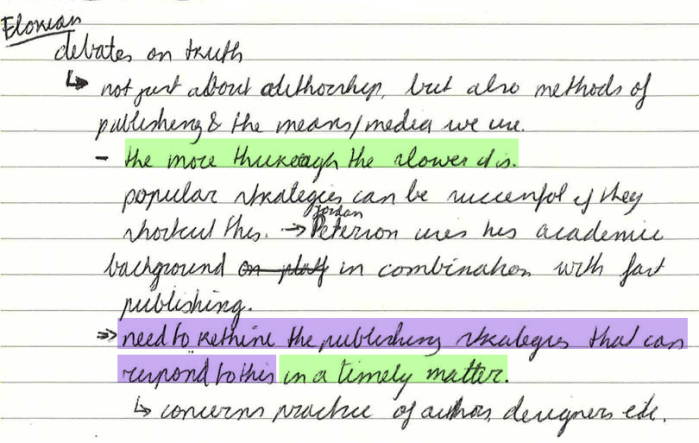 Florian
debates on truth
↳ not just about authorship, but also methods of
publishing & the means/media we use.
- the more thorough the slower it is.
popular strategies can be successful if they
shortcut this. → Jordan Peterson uses his academic
background in combination with fast
publishing.
⇒ need to rethink the publishing strategies that can
respond to this in a timely matter.
↳ concerns practice of authors, designers etc.